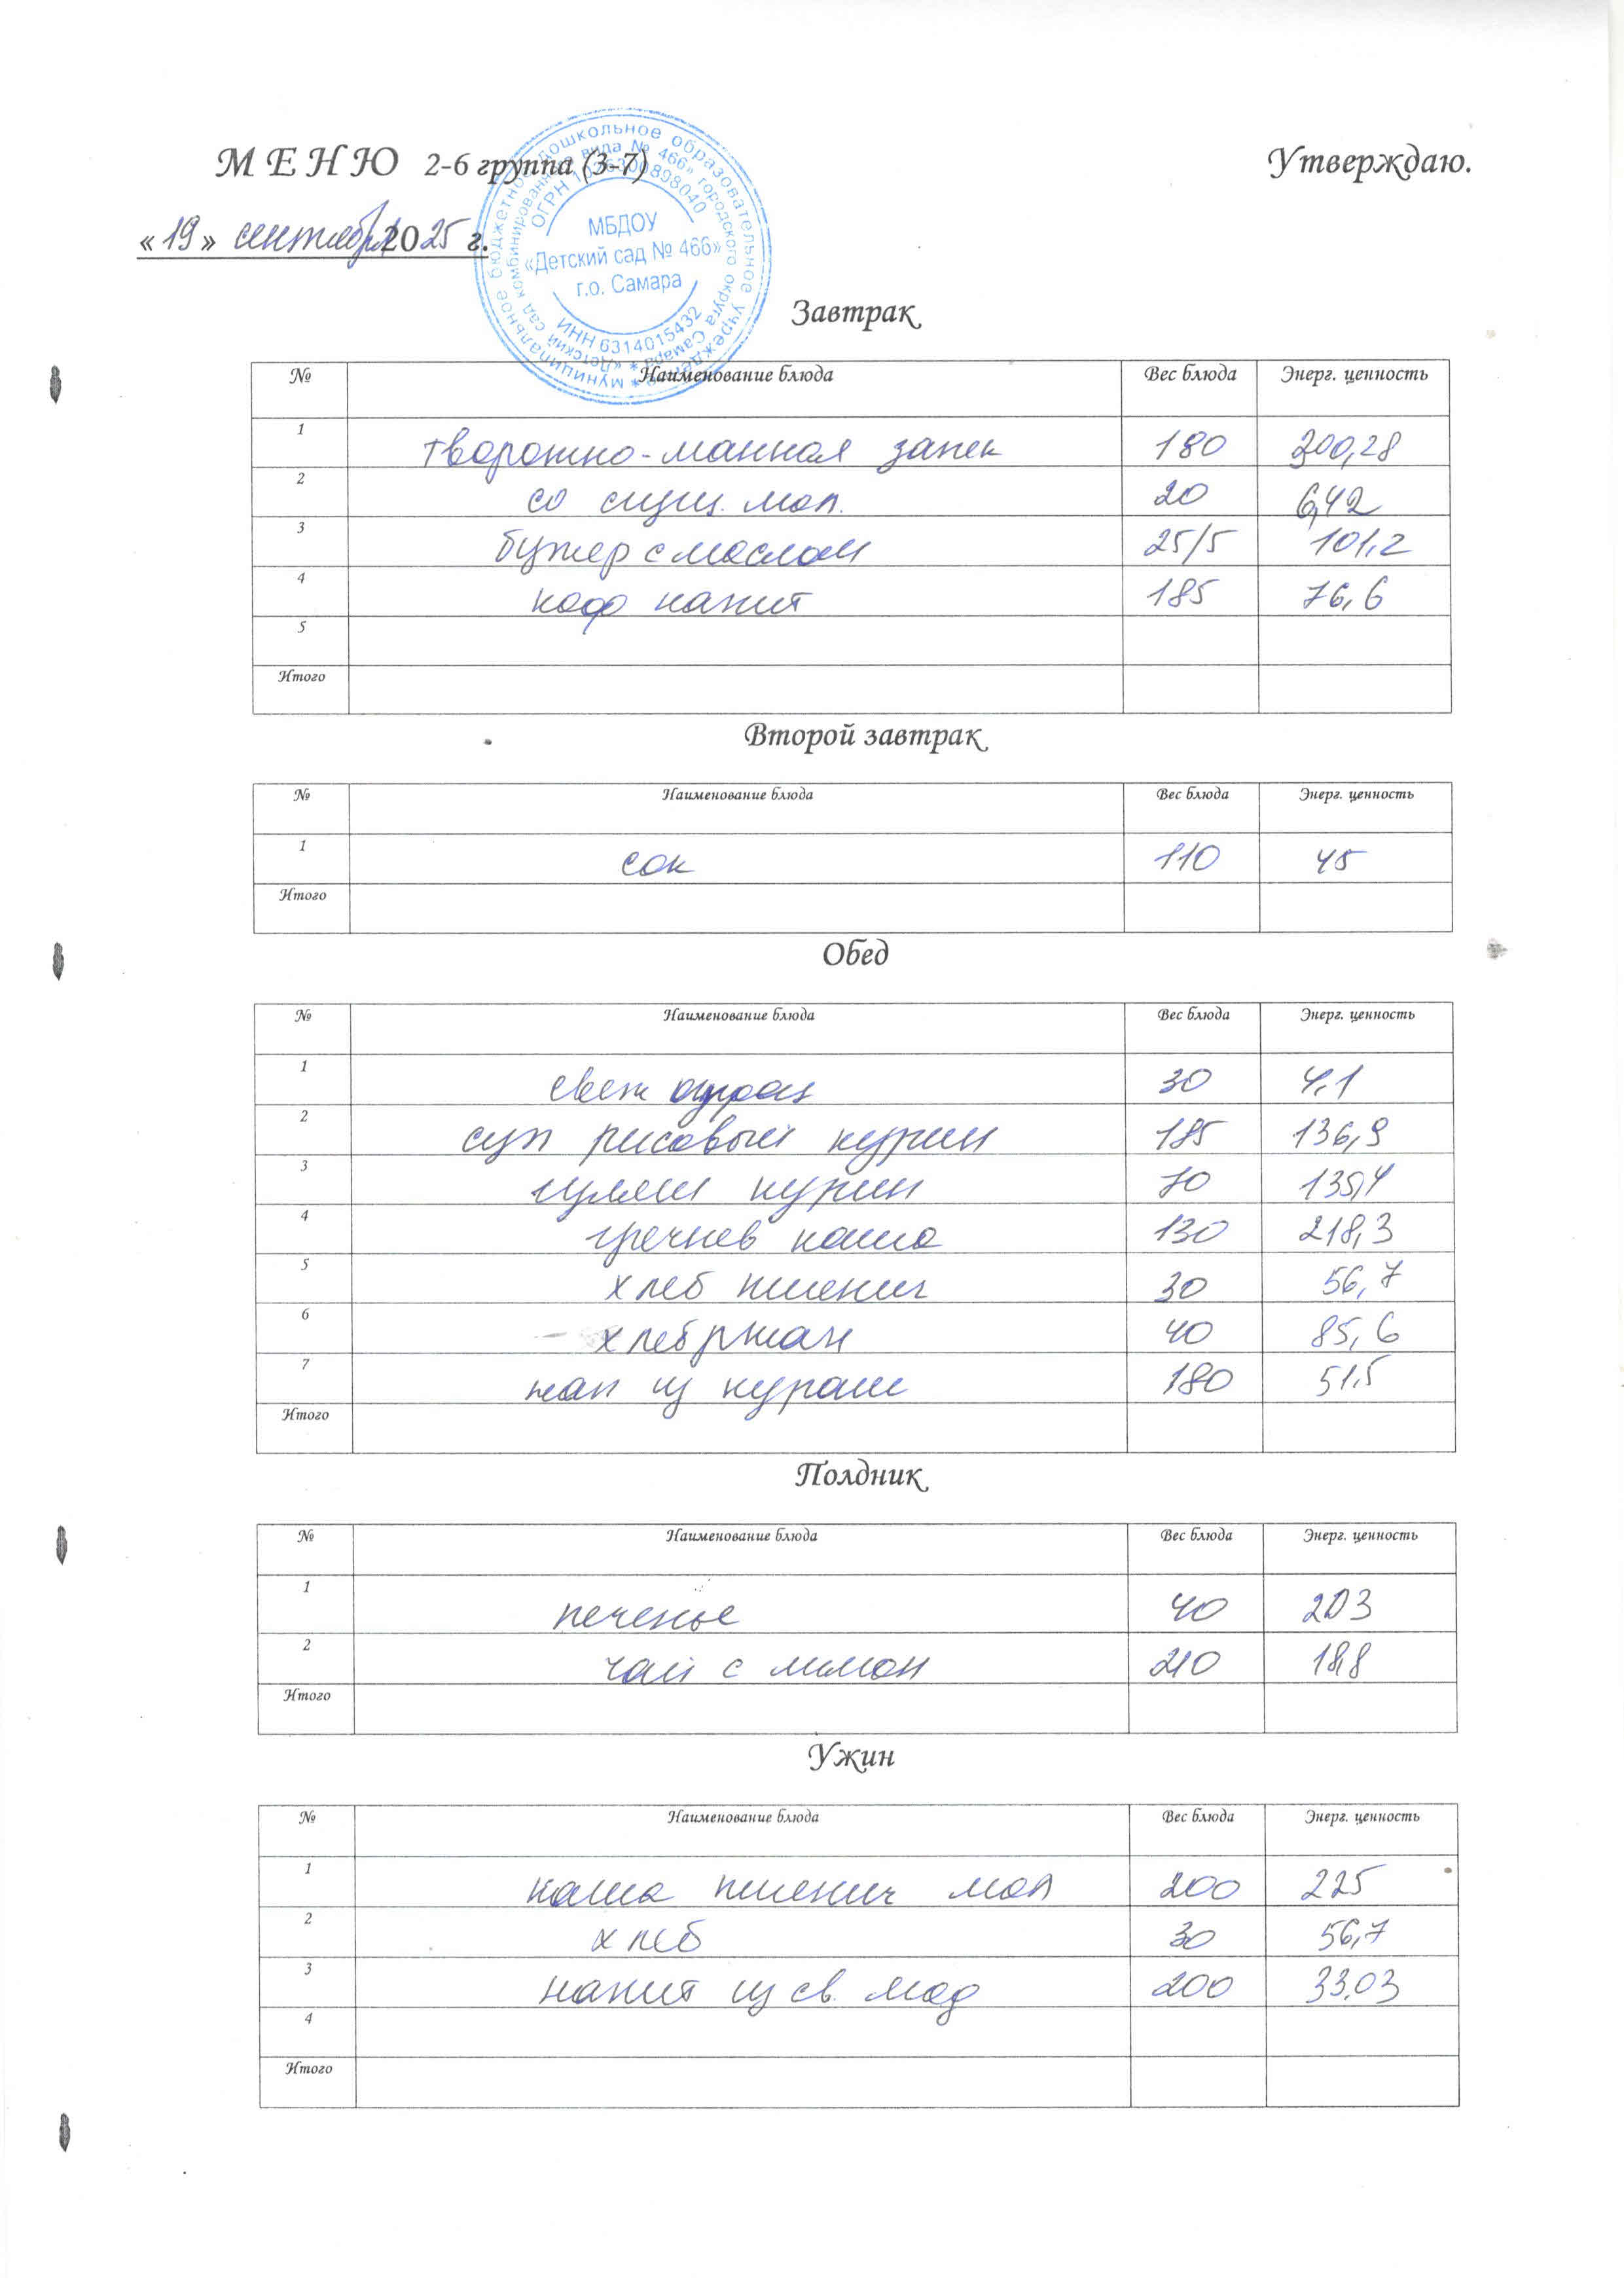 М Е Н Ю 2-6 группа (3-7) Утверждаю.
«19» сентября 2025 г.
муниципальное бюджетное дошкольное образовательное учреждение
«Детский сад комбинированного вида № 466» городского округа Самара
ОГРН 1026300898040
МБДОУ
«Детский сад № 466»
г.о. Самара
ИНН 6314015432
Завтрак
№ Наименование блюда Вес блюда Энерг. ценность
1 творожно-манная запек 180 300,28
2 со сгущ. мол. 20 6,42
3 бутер с маслом 25/5 101,2
4 коф напит 185 76,6
5
Итого
Второй завтрак
№ Наименование блюда Вес блюда Энерг. ценность
1 сок 110 45
Итого
Обед
№ Наименование блюда Вес блюда Энерг. ценность
1 свеж 30 4,1
2 суп рисовый курин 185 136,9
3 гуляш курин 70 135,4
4 гречнев каша 130 218,3
5 хлеб пшенич 30 56,7
6 хлеб ржан 40 85,6
7 нап из кураги 180 51,5
Итого
Полдник
№ Наименование блюда Вес блюда Энерг. ценность
1 печенье 40 203
2 чай с лимон 210 18,8
Итого
Ужин
№ Наименование блюда Вес блюда Энерг. ценность
1 каша пшенич мол 200 225
2 хлеб 30 56,7
3 напит из св. 200 33,03
4
Итого